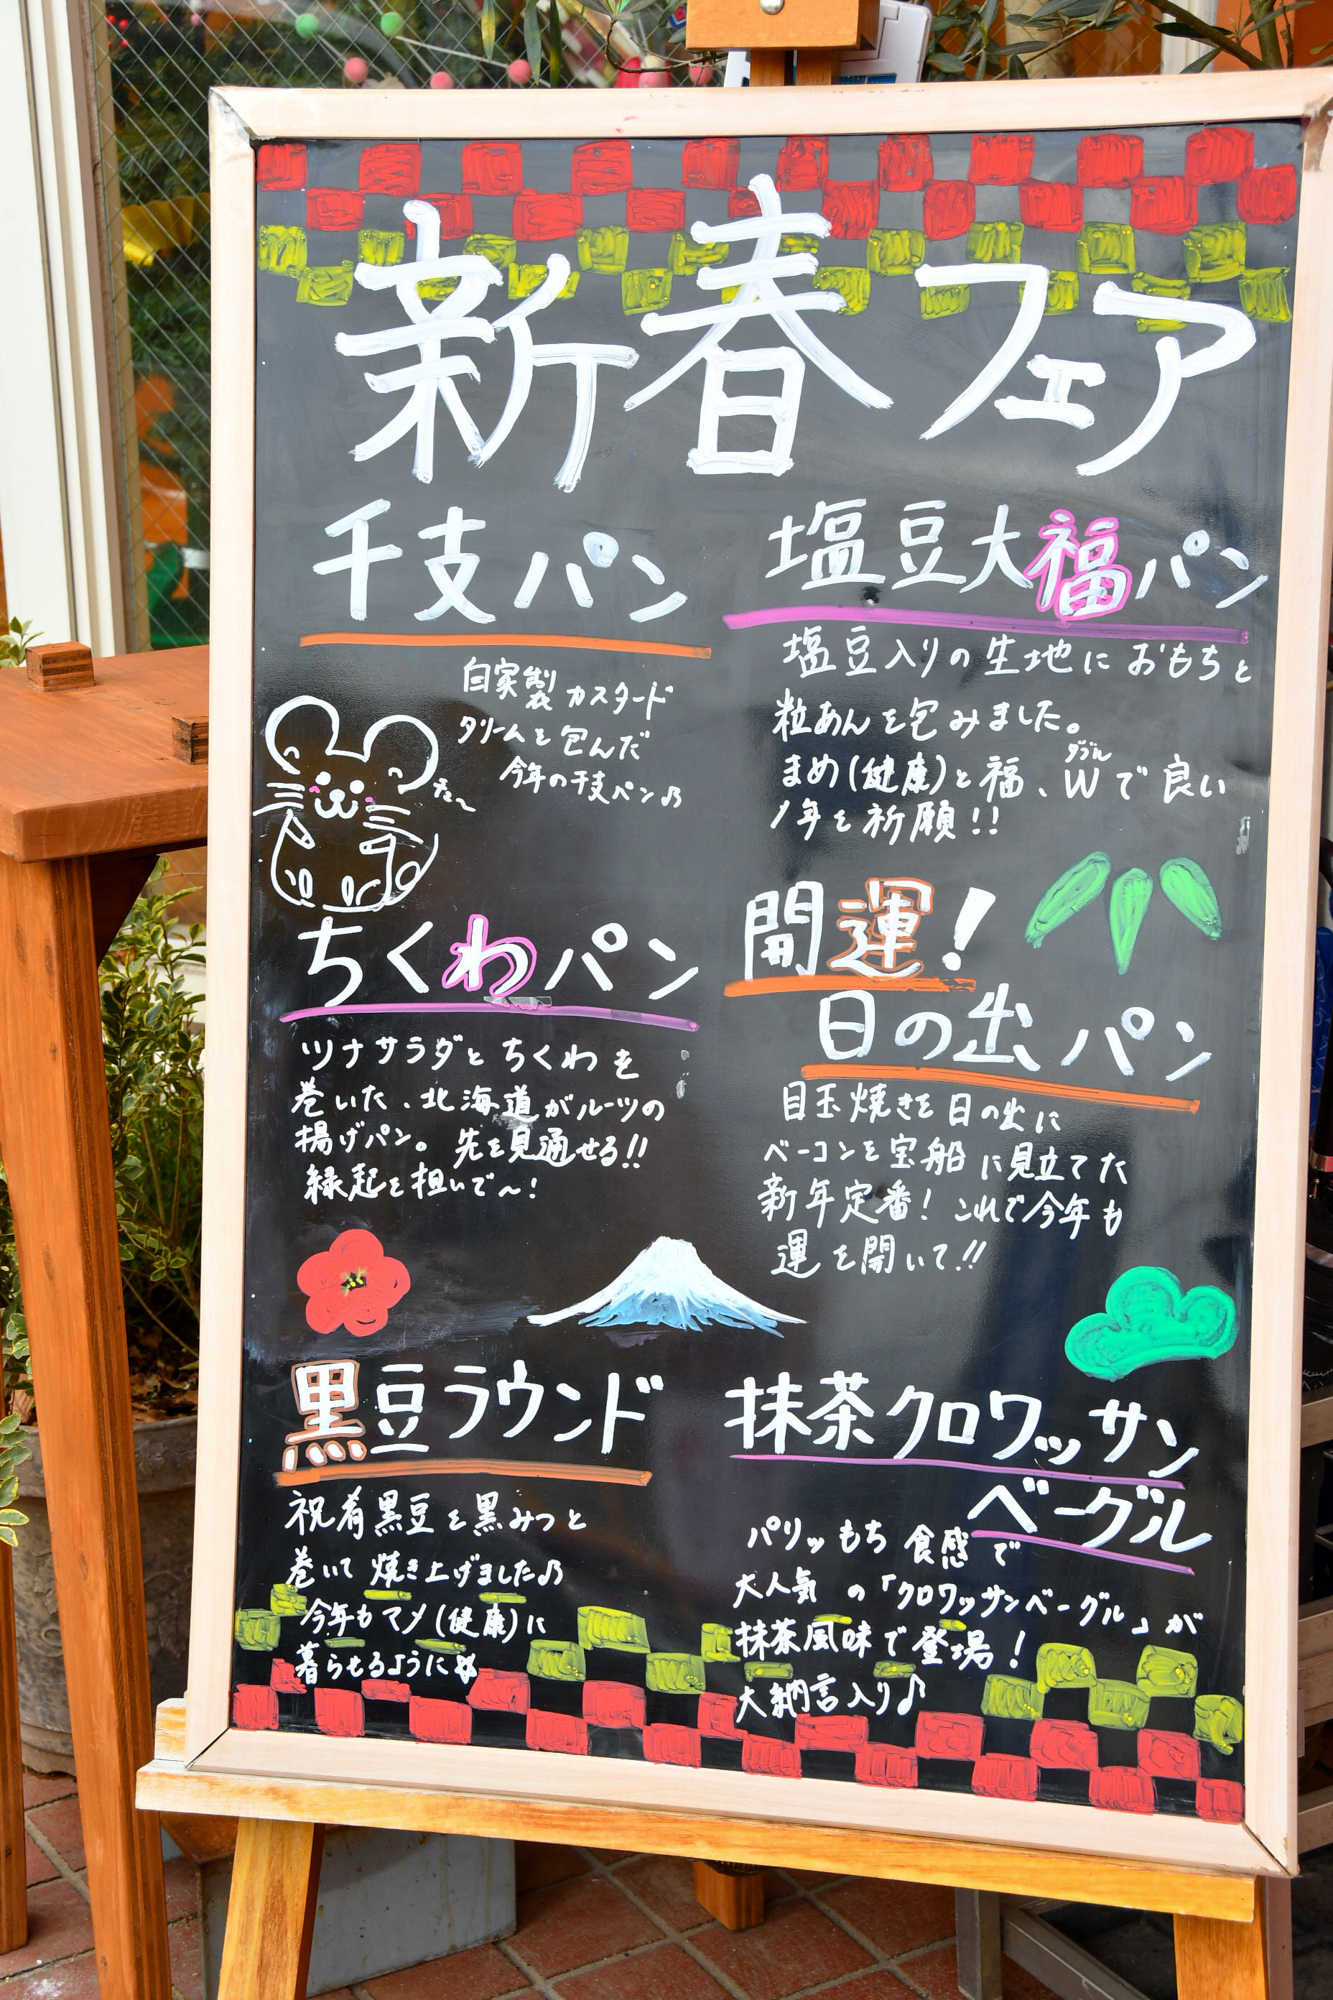 新春フェア
干支パン
自家製カスタード
クリームを包んだ
今年の干支パン♪
塩豆大福パン
塩豆入りの生地におもちと
粒あんを包みました。
まめ(健康)と福、Wで良い
ダブル
1年を祈願!!
ちくわパン
ツナサラダとちくわを
巻いた、北海道がルーツの
揚げパン。先を見通せる!!
縁起を担いで〜!
開運!
日の出パン
目玉焼きを日の出に
ベーコンを宝船に見立てた
新年定番!これで今年も
運を開いて!!
黒豆ラウンド
祝肴黒豆を黒みつと
巻いて焼き上げました♪
今年もマメ(健康)に
暮らせるように
抹茶クロワッサン
ベーグル
パリッもち食感で
大人気の「クロワッサンベーグル」が
抹茶風味で登場!
大納言入り♪